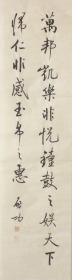 萬邦凱樂非悦鐘鼓之娱天下
归仁非感玉帛之惠
啟功